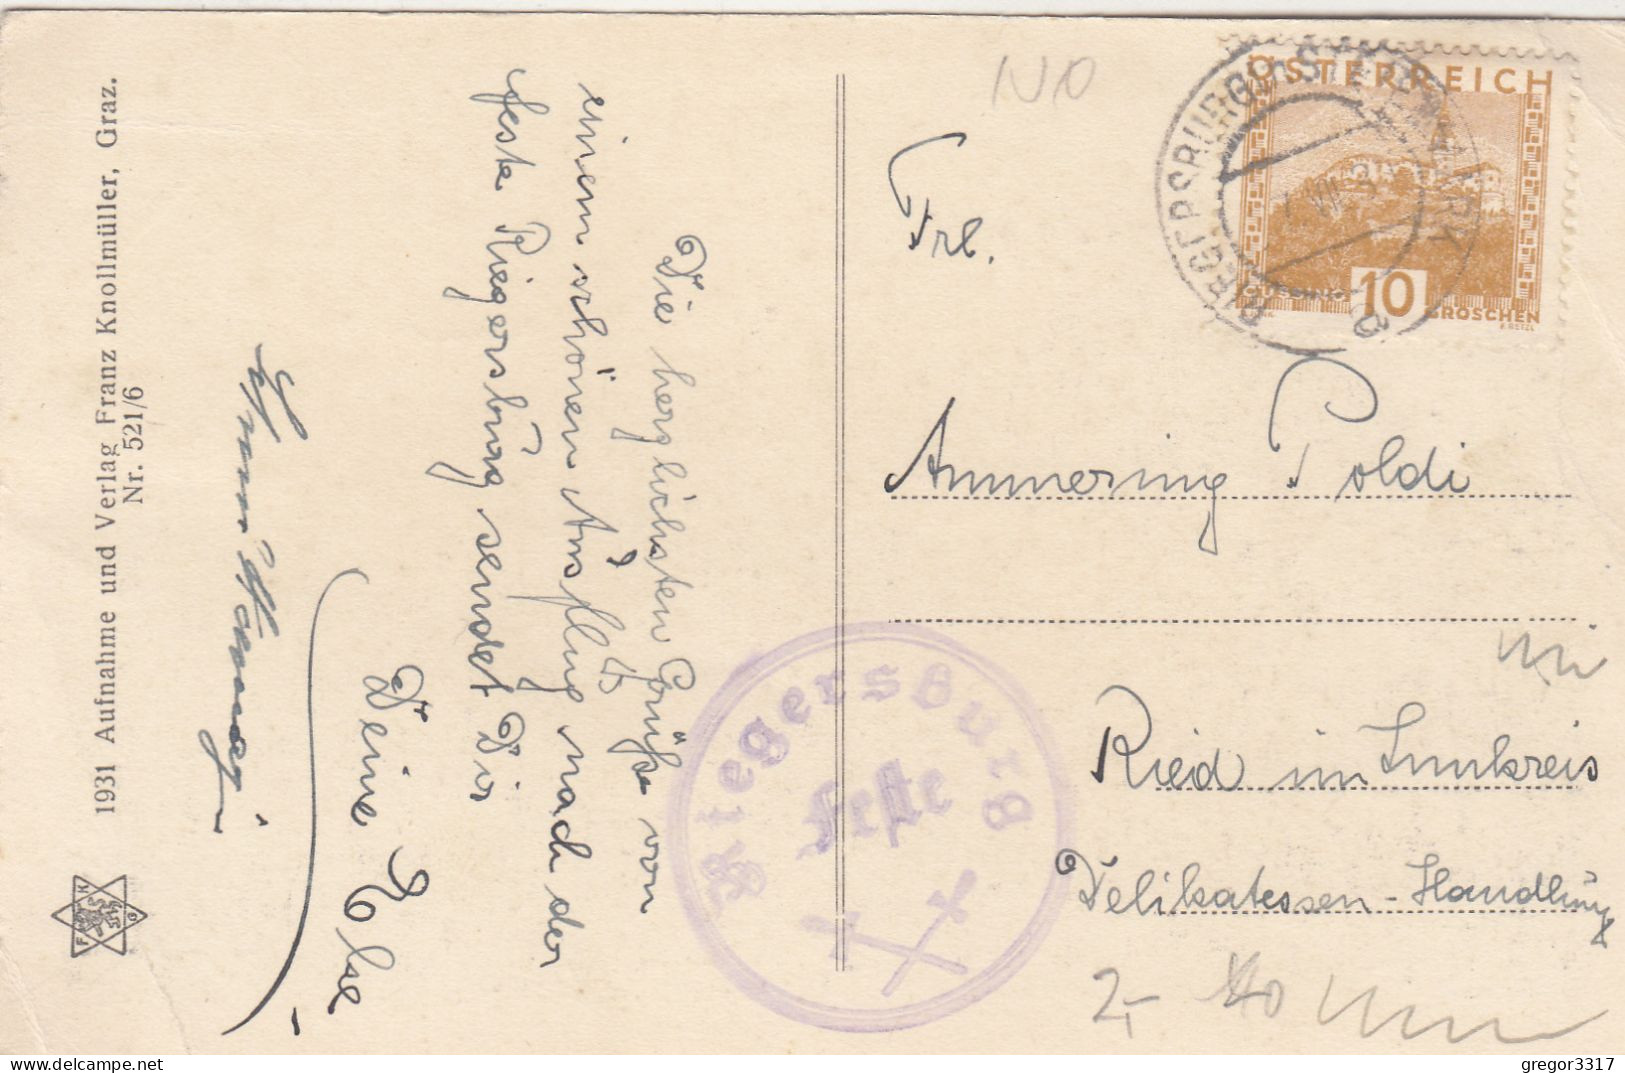 1931 Aufnahme und Verlag Franz Knollmüller, Graz.
Nr. 521/6
F K G
Die herzlichsten Grüße von
einem schönen Ausflug nach der
feste Riegersburg sendet Dir
Deine Else
Riegersburg
Feste
ÖSTERREICH
GÜSSING
10
GROSCHEN
STEIERMARK
Frl.
Ammering Poldi
Ried im Innkreis
Delikatessen-Handlung
2,-
gregor3317